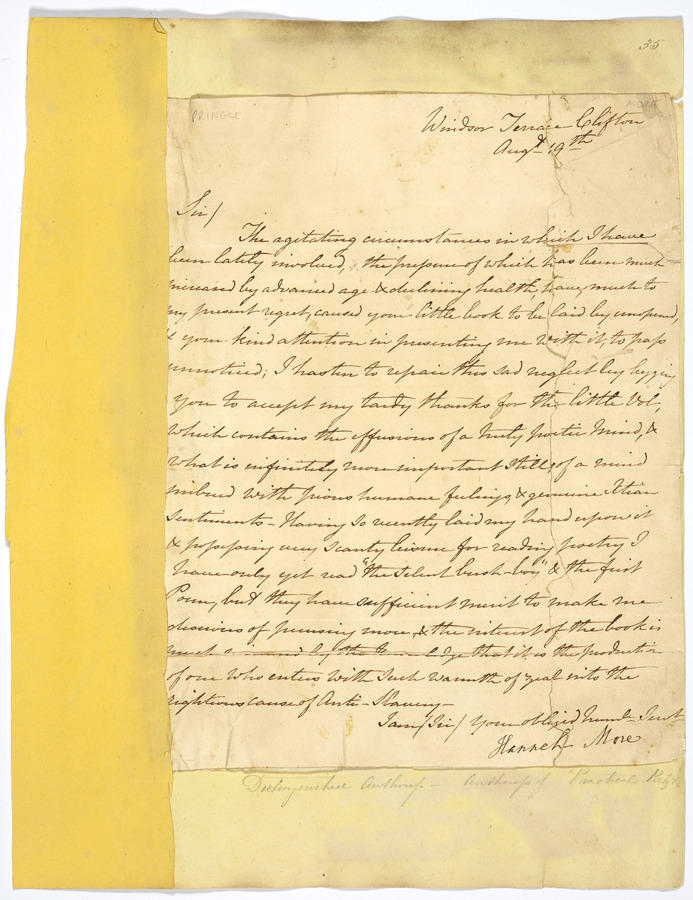 35
PRINGLE
MORE
Windsor Terrace Clifton
Augst 19th
Sir/
The agitating circumstances in which I have
been lately involved, the pressure of which has been much
increased by advanced age & declining health have, much to
my present regret, caused your little book to be laid by unopened,
& your kind attention in presenting me with it, to pass
unnoticed; I hasten to repair this sad neglect by begging
you to accept my tardy thanks for the little Vol,
which contains the effusions of a truly poetic mind, &
what is infinitely more important still, of a mind
imbued with pious humane feelings, & genuine Xtian
Sentiments - Having so recently laid my hand upon it
& possessing very scanty leisure for reading poetry I
have only yet read "the silent bush-boy" & the first
Poem, but they have sufficient merit to make me
desirous of perusing more, & the interest of the book is
much by the knowledge that it is the production
of one who enters with such warmth of zeal into the
righteous cause of Anti-Slavery -
I am/Sir/ your obliged humle Servt
Hannah More
Distinguished Authoress - Authoress of "Practical Piety"